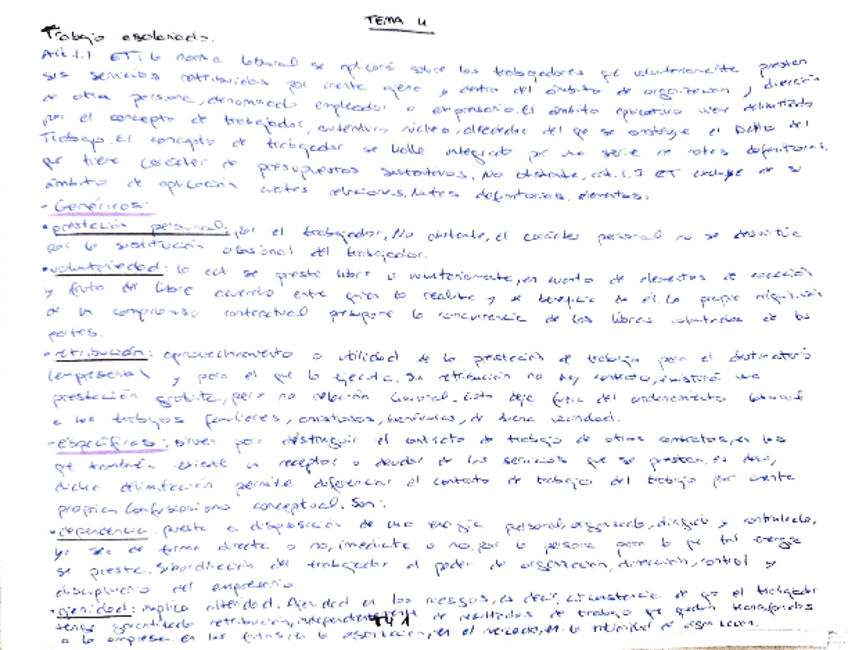 TEMA 4
Trabajo asalariado.
Art. 1.1 ET: la norma laboral se aplicará sobre los trabajadores que voluntariamente presten
sus servicios retribuidos por cuenta ajena y dentro del ámbito de organización y dirección
de otra persona, denominado empleador o empresario. El ámbito aplicativo viene delimitado
por el concepto de trabajador, auténtico núcleo, alrededor del que se construye el Dcho del
Trabajo. El concepto de trabajador se halla integrado por una serie de notas definitorias,
que tiene carácter de presupuestos sustantivos. No obstante, art. 1.3 ET excluye de su
ámbito de aplicación ciertas relaciones. Notas definitorias. elementos.
- Genéricos:
• prestación personal: por el trabajador. No obstante, el carácter personal no se desvirtúa
por la sustitución ocasional del trabajador.
• voluntariedad: la act se presta libre o voluntariamente, en cuanto de elementos de coacción
y fruto del libre acuerdo entre quien lo realiza y se beneficia de él. La propia
de un compromiso contractual presupone la concurrencia de las libres voluntades de las
partes.
• retribución: aprovechamiento o utilidad de la prestación de trabajo para el destinatario
(empresario) y para el que la ejecuta. Sin retribución no hay contrato, existirá una
prestación gratuita, pero no relación laboral. Esto deja fuera del ordenamiento laboral
a los trabajos familiares, amistosos, benévolos, de buena vecindad.
- específicos: sirven para distinguir el contrato de trabajo de otros contratos, en los
que también existe un receptor o deudor de los servicios que se prestan, es decir,
dicha delimitación permite diferenciar el contrato de trabajo del trabajo por cuenta
propia. Confusionismo conceptual. Son:
• dependencia: puesta a disposición de una energía personal, organizada, dirigida y controlada,
ya sea de forma directa o no, inmediata o no, por la persona para la que tal energía
se presta. Subordinación del trabajador al poder de organización, dirección, control y
disciplinario del empresario
• ajenidad: implica alteridad. Ajenidad en los riesgos, es decir, circunstancia de que el trabajador
tenga garantizada retribución, independientemente de resultados de trabajo que quedan transferidos
a la empresa en los frutos, en la organización, en el mercado, en la titularidad de organización.
T4 1